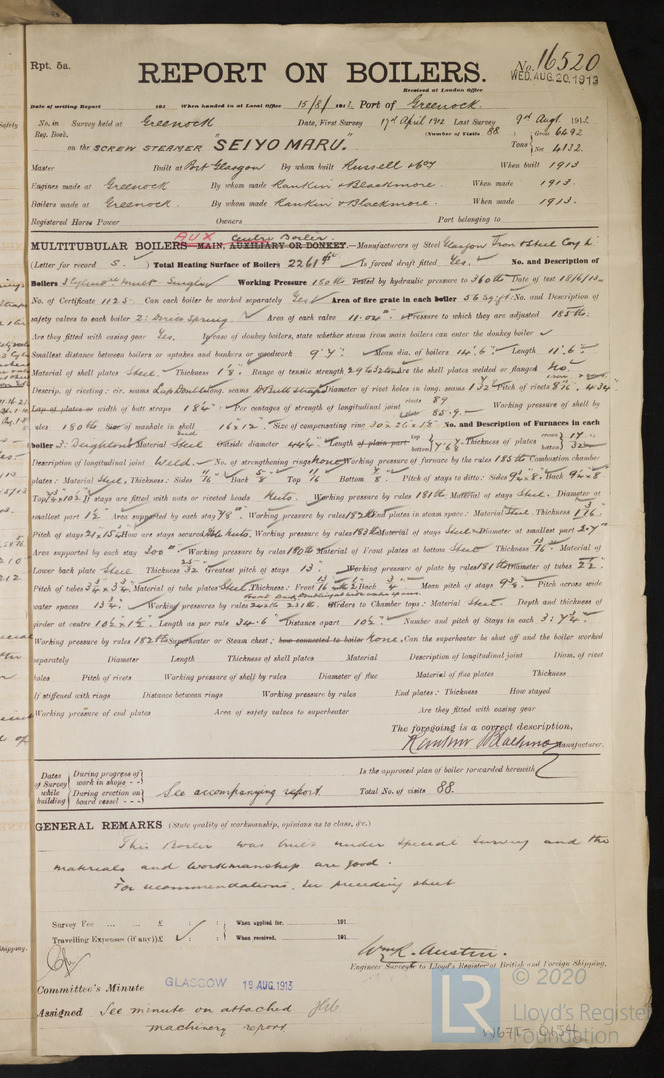 Rpt. 5a.
REPORT ON BOILERS.
No. 16520
Received at London Office
WED. AUG. 20. 1913
Date of writing Report 191 When handed in at Local Office 15/8/ 1913 Port of Greenock
No. in Survey held at Greenock Date, First Survey 17th April 1912 Last Survey 9th Augt 1913
Reg. Book. (Number of Visits 88)
on the SCREW STEAMER "SEIYO MARU." Tons Gross 6492 Net 4132
Master Built at Port Glasgow By whom built Russell & Coy When built 1913
Engines made at Greenock By whom made Rankin & Blackmore. When made 1913.
Boilers made at Greenock. By whom made Rankin & Blackmore. When made 1913.
Registered Horse Power Owners Port belonging to
AUX Centre Boiler.
MULTITUBULAR BOILERS MAIN, AUXILIARY OR DONKEY.—Manufacturers of Steel Glasgow Iron & Steel Coy Ld
(Letter for record S.) Total Heating Surface of Boilers 2261 Is forced draft fitted Yes. No. and Description of
Boilers Working Pressure 180 lbs Tested by hydraulic pressure to 360 lbs Date of test 18/6/13
No. of Certificate 1125 Can each boiler be worked separately Yes Area of fire grate in each boiler 56 sq ft No. and Description of
safety valves to each boiler 2: Direct Spring Area of each valve 11.04" Pressure to which they are adjusted 185 lbs
Are they fitted with easing gear Yes. In case of donkey boilers, state whether steam from main boilers can enter the donkey boiler
Smallest distance between boilers or uptakes and bunkers or woodwork 9'7" Mean dia. of boilers 14'.6" Length 11'.6"
Material of shell plates Steel Thickness 1 1/8 Range of tensile strength 29 & 32 tons Are the shell plates welded or flanged No.
Descrip. of riveting: cir. seams Lap Double long. seams D Butt Straps Diameter of rivet holes in long. seams 1 7/32 Pitch of rivets
Lap of plates or width of butt straps 18 1/4 Per centages of strength of longitudinal joint rivets 89 plate 85.9 Working pressure of shell by
rules 180 lbs Size of manhole in shell 16 x 12 Size of compensating ring No. and Description of Furnaces in each
boiler 3: Deighton Material Steel Outside diameter 44 1/4" Length of plain part top bottom Thickness of plates crown bottom 17/32
Description of longitudinal joint Weld. No. of strengthening rings None Working pressure of furnace by the rules 185 lbs Combustion chamber
plates: Material Steel, Thickness: Sides 11/16 Back 5/8 Top 11/16 Bottom 7/8 Pitch of stays to ditto: Sides Back
Top If stays are fitted with nuts or riveted heads Nuts. Working pressure by rules 181 lbs Material of stays Steel. Diameter at
smallest part 1 1/2 Area supported by each stay 78" Working pressure by rules 182 lbs End plates in steam space: Material Steel Thickness 1 3/16
Pitch of stays How are stays secured Working pressure by rules 183 lbs Material of stays Steel Diameter at smallest part 2.7"
Area supported by each stay 300" Working pressure by rules 180 lbs Material of Front plates at bottom Steel Thickness 13/16 Material of
Lower back plate Steel Thickness 25/32 Greatest pitch of stays 13 Working pressure of plate by rules 181 lbs Diameter of tubes 2 1/2
Pitch of tubes 3 3/4 x 3 3/4 Material of tube plates Steel Thickness: Front Back Mean pitch of stays 9 3/8 Pitch across wide
water spaces 13 1/4 Working pressures by rules Girders to Chamber tops: Material Steel. Depth and thickness of
girder at centre 10 1/2 x 1 1/2 Length as per rule 34.6 Distance apart 10 1/2 Number and pitch of Stays in each 3: 7 1/4
Working pressure by rules 182 lbs Superheater or Steam chest; how connected to boiler None Can the superheater be shut off and the boiler worked
separately Diameter Length Thickness of shell plates Material Description of longitudinal joint Diam. of rivet
holes Pitch of rivets Working pressure of shell by rules Diameter of flue Material of flue plates Thickness
If stiffened with rings Distance between rings Working pressure by rules End plates: Thickness How stayed
Working pressure of end plates Area of safety valves to superheater Are they fitted with easing gear
The foregoing is a correct description,
Rankin & Blackmore Manufacturer.
Dates of Survey while building During progress of work in shops - - During erection on board vessel - - - See accompanying report
Is the approved plan of boiler forwarded herewith
Total No. of visits 88.
GENERAL REMARKS (State quality of workmanship, opinions as to class, &c.)
This Boiler was built under special survey and the
materials and workmanship are good.
For recommendations, see preceding sheet
Survey Fee ... ... £ : : When applied for, 191
Travelling Expenses (if any) £ : : When received, 191
Wm R. Austin.
Engineer Surveyor to Lloyd's Register of British and Foreign Shipping.
Committee's Minute GLASGOW 19 AUG. 1913
Assigned See minute on attached
machinery report
© 2020
LR
Lloyd's Register
Foundation
W671-0154